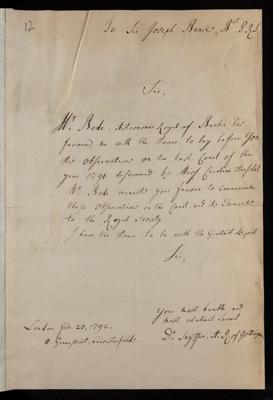 12
To Sir Joseph Banks, Bt. P.R.S.
Sir,
Mr. Bode, Astronomer Royal of Berlin has
favoured me with the Honor, to lay before You
his Observations on the last Comet of the
year 1791 discovered by Miss Caroline Herschel
Mr. Bode requests you favour to communicate
these Observations on the Comet and its Elements
to the Royal Society
I have the Honor to be with the Greatest Respect
Sir,
Your most humble and
most obedient Servant
London Feb. 20, 1792.
Dr. Seyffer, A. R. of Gottingen
11. Green Street, Leicesterfields.